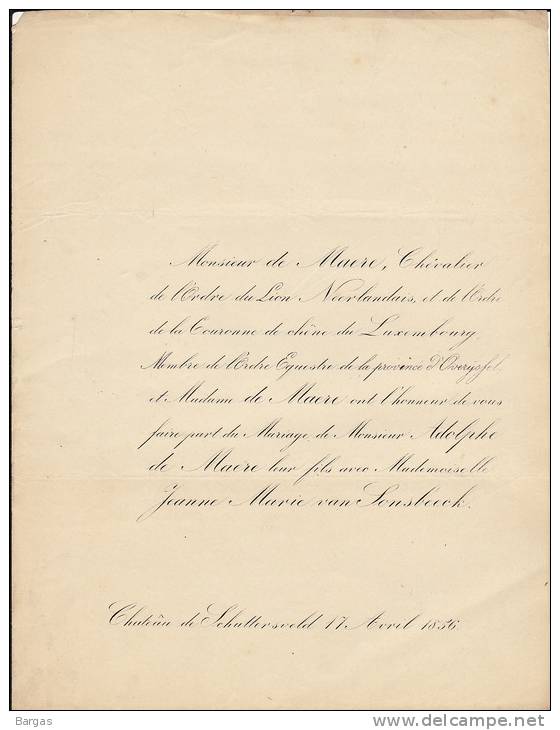 Monsieur de Maere, Chévalier
de l'Ordre du Lion Néerlandais, et de l'Ordre
de la Couronne de chêne du Luxembourg,
Membre de l'Ordre Equestre de la province d'Overijssel
et Madame de Maere ont l'honneur de vous
faire part du Mariage de Monsieur Adolphe
de Maere leur fils avec Mademoiselle
Jeanne Marie van Sonsbeeck.
Château de Schuttersveld 17 Avril 1856.
Bargas
www.delcampe.net